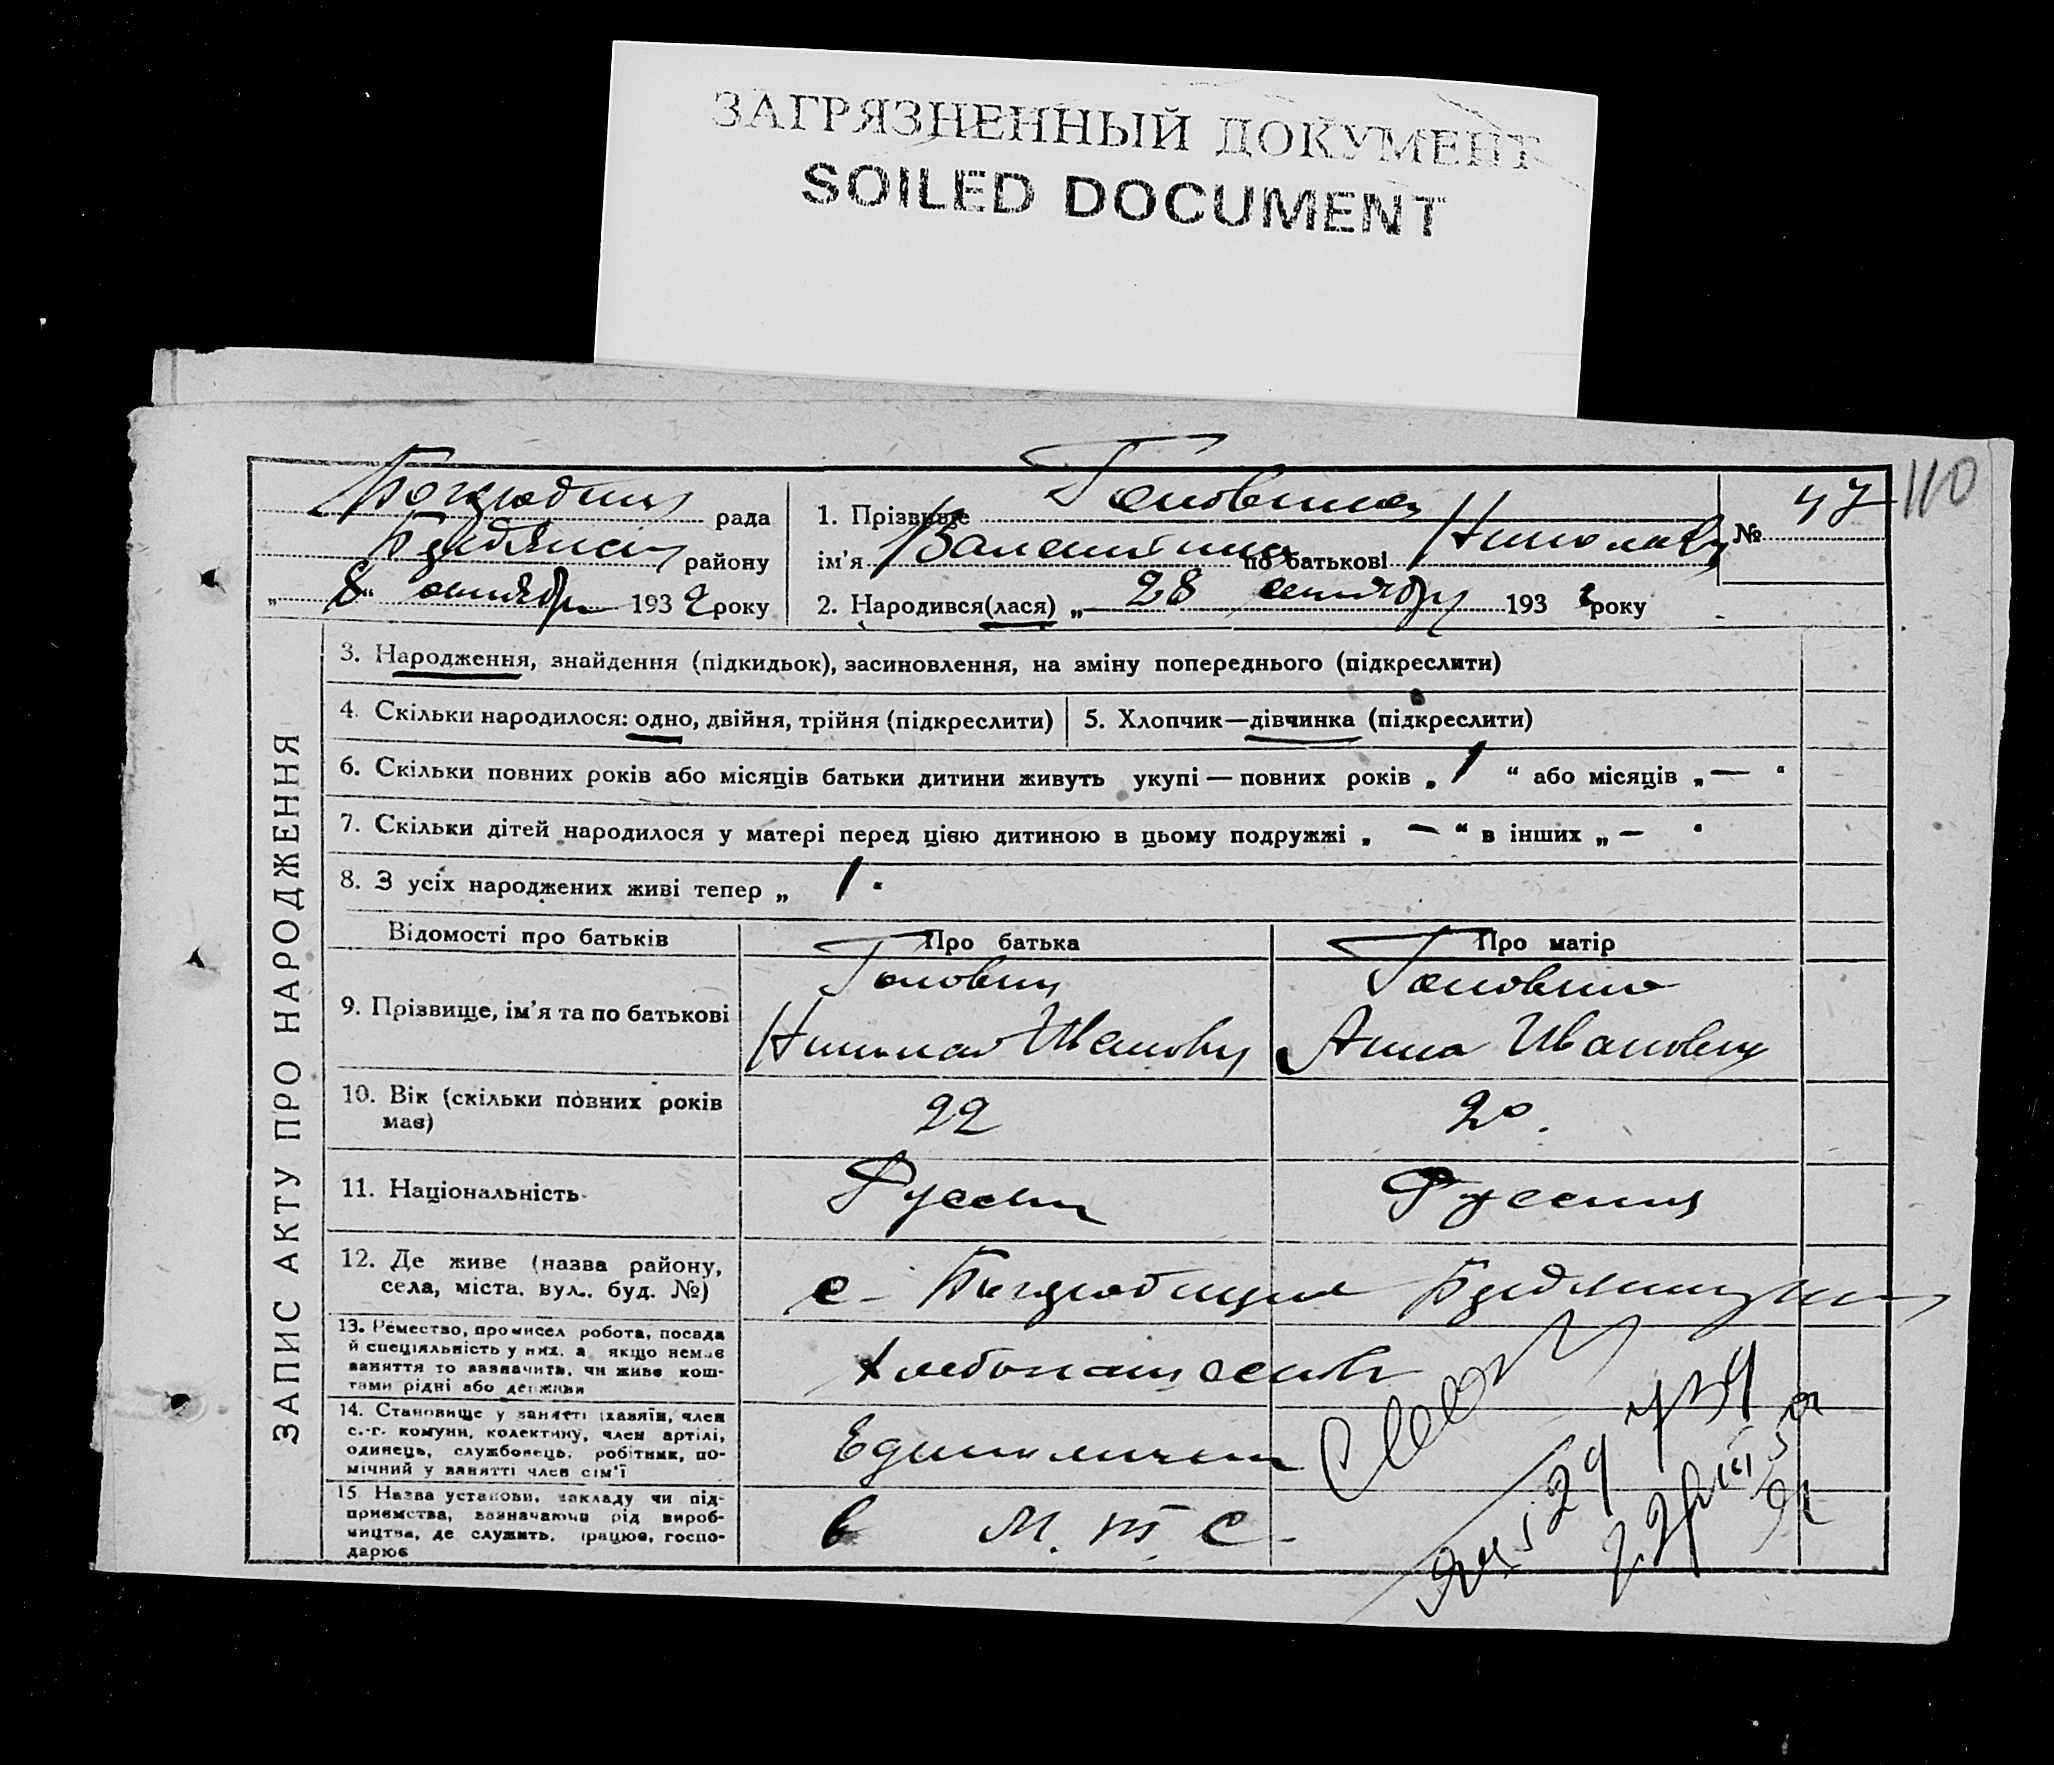 ЗАГРЯЗНЕННЫЙ ДОКУМЕНТ
SOILED DOCUMENT
110
рада
району
„ 8 “ октября 1932 року
1. Прізвище
ім'я Валентина по батькові
2. Народився(лася) „ 28 сентября 1932 року
№ 47
ЗАПИС АКТУ ПРО НАРОДЖЕННЯ
3. Народження, знайдення (підкидьок), засиновлення, на зміну попереднього (підкреслити)
4. Скільки народилося: одно, двійня, трійня (підкреслити)
5. Хлопчик—дівчинка (підкреслити)
6. Скільки повних років або місяців батьки дитини живуть укупі — повних років „ 1 “ або місяців „ — “
7. Скільки дітей народилося у матері перед цією дитиною в цьому подружжі „ — “ в інших „ — “
8. З усіх народжених живі тепер „ 1 “
Відомості про батьків
Про батька
Про матір
9. Прізвище, ім'я та по батькові
Николай Иванович
Анна Ивановна
10. Вік (скільки повних років
має)
22
20.
11. Національність
Русский
Русская
12. Де живе (назва району,
села, міста. вул.. буд. №)
с.
13. Ремество, промисел робота, посада
й спеціяльність у них. а якщо немає
заняття то зазначить, чи живе кош-
тами рідні або держави
Хлебопашество
14. Становище у занятті (хазяїн, член
с.-г. комуни, колективу, член артілі,
одинець, службовець, робітник, по-
мічний у занятті член сім'ї
Единоличник
15. Назва установи, закладу чи під-
приємства, зазначаючи рід вироб-
ництва, де служить, працює, госпо-
дарює
в М. Т. С.